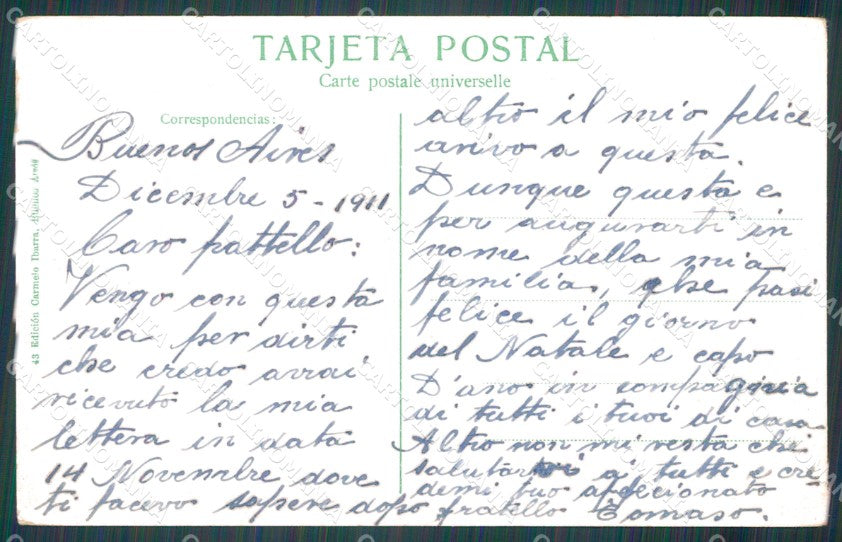 TARJETA POSTAL
Carte postale universelle
Correspondencias:
43 Edición Carmelo Ibarra,
Buenos Aires
Dicembre 5 - 1911
Caro frattello:
Vengo con questa
mia per dirti
che credo avrai
ricevuto la mia
lettera in data
14 Novembre dove
ti facevo sapere dopo
altro il mio felice
arivo a questa.
Dunque questa e
per augurarti in
nome della mia
familia, che pasi
felice il giorno
del Natale e capo
D'ano in compaginia
di tutti i tuoi di casa
Altro non mi resta che
salutarvi a tutti e cre
demi tuo affecionato
fratello Tomaso.
CARTOLINOMANIA